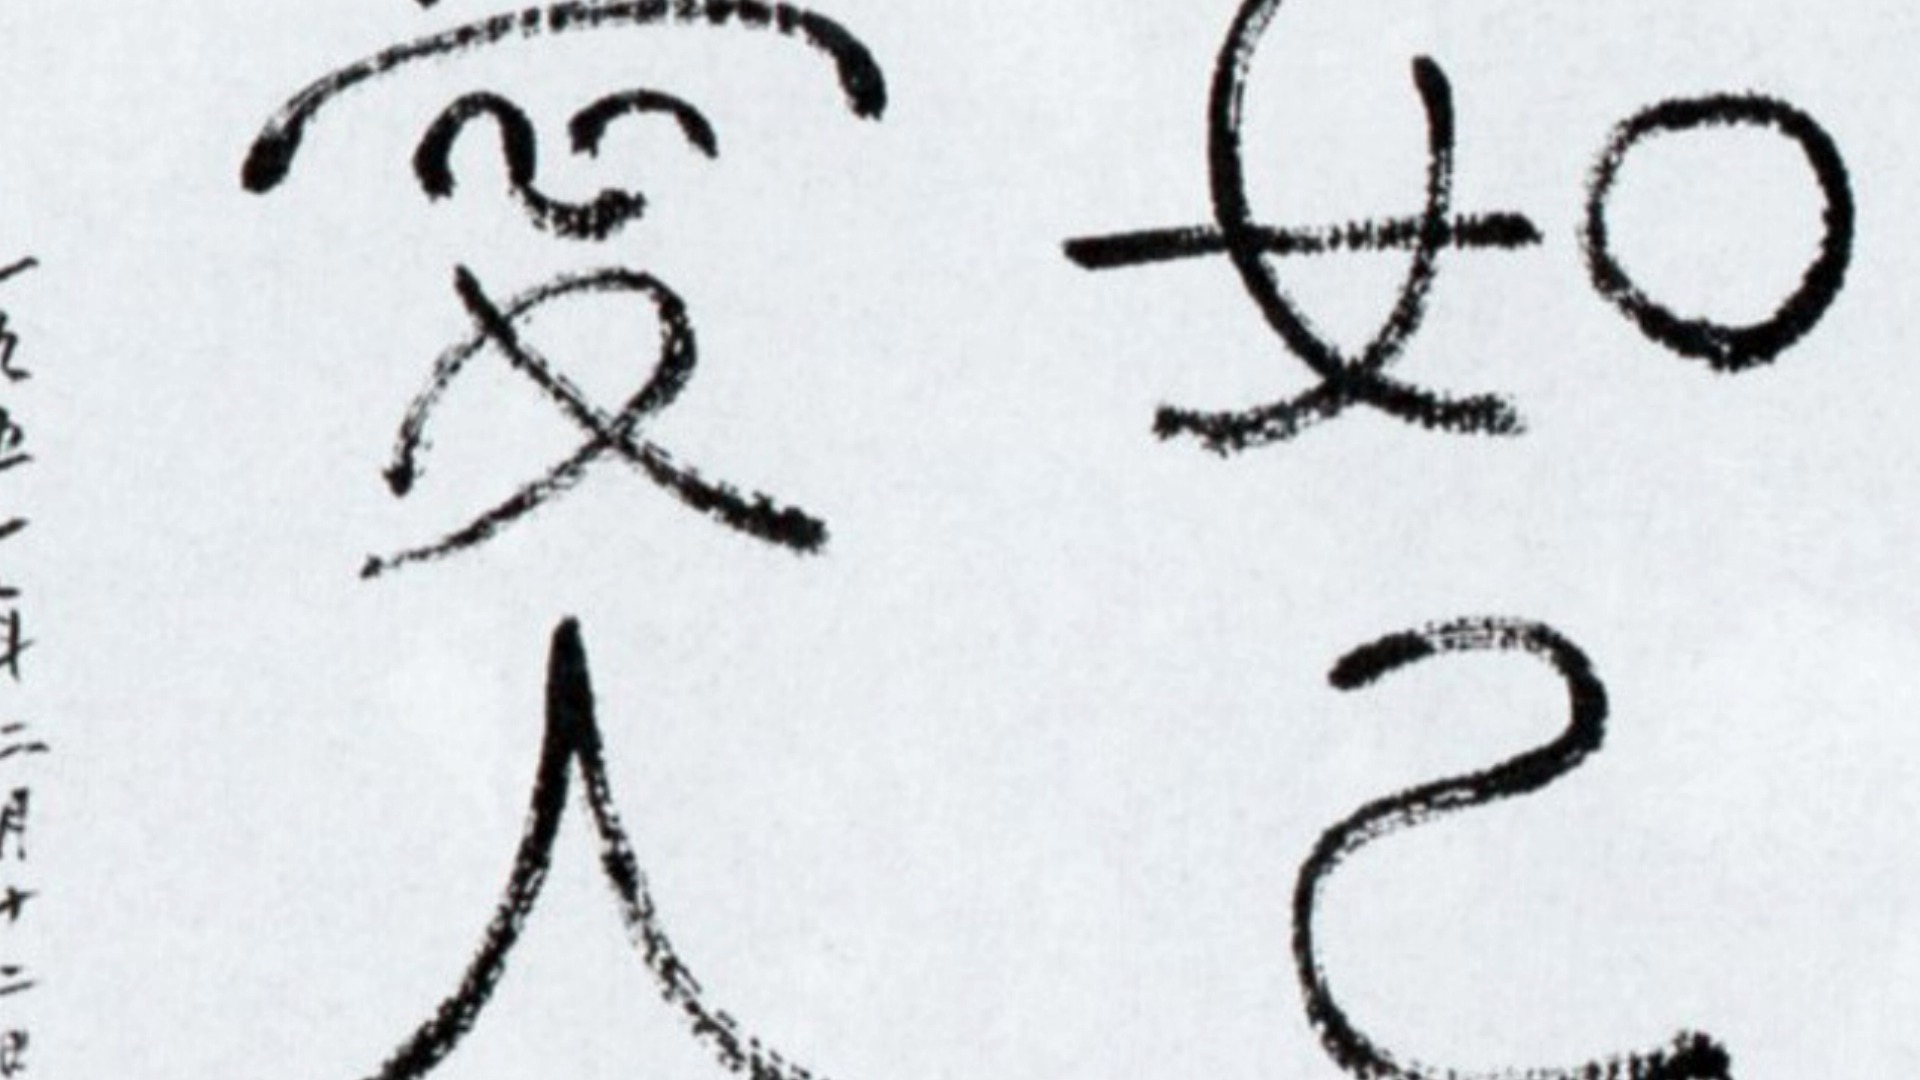 如己
愛人
年二月十二日